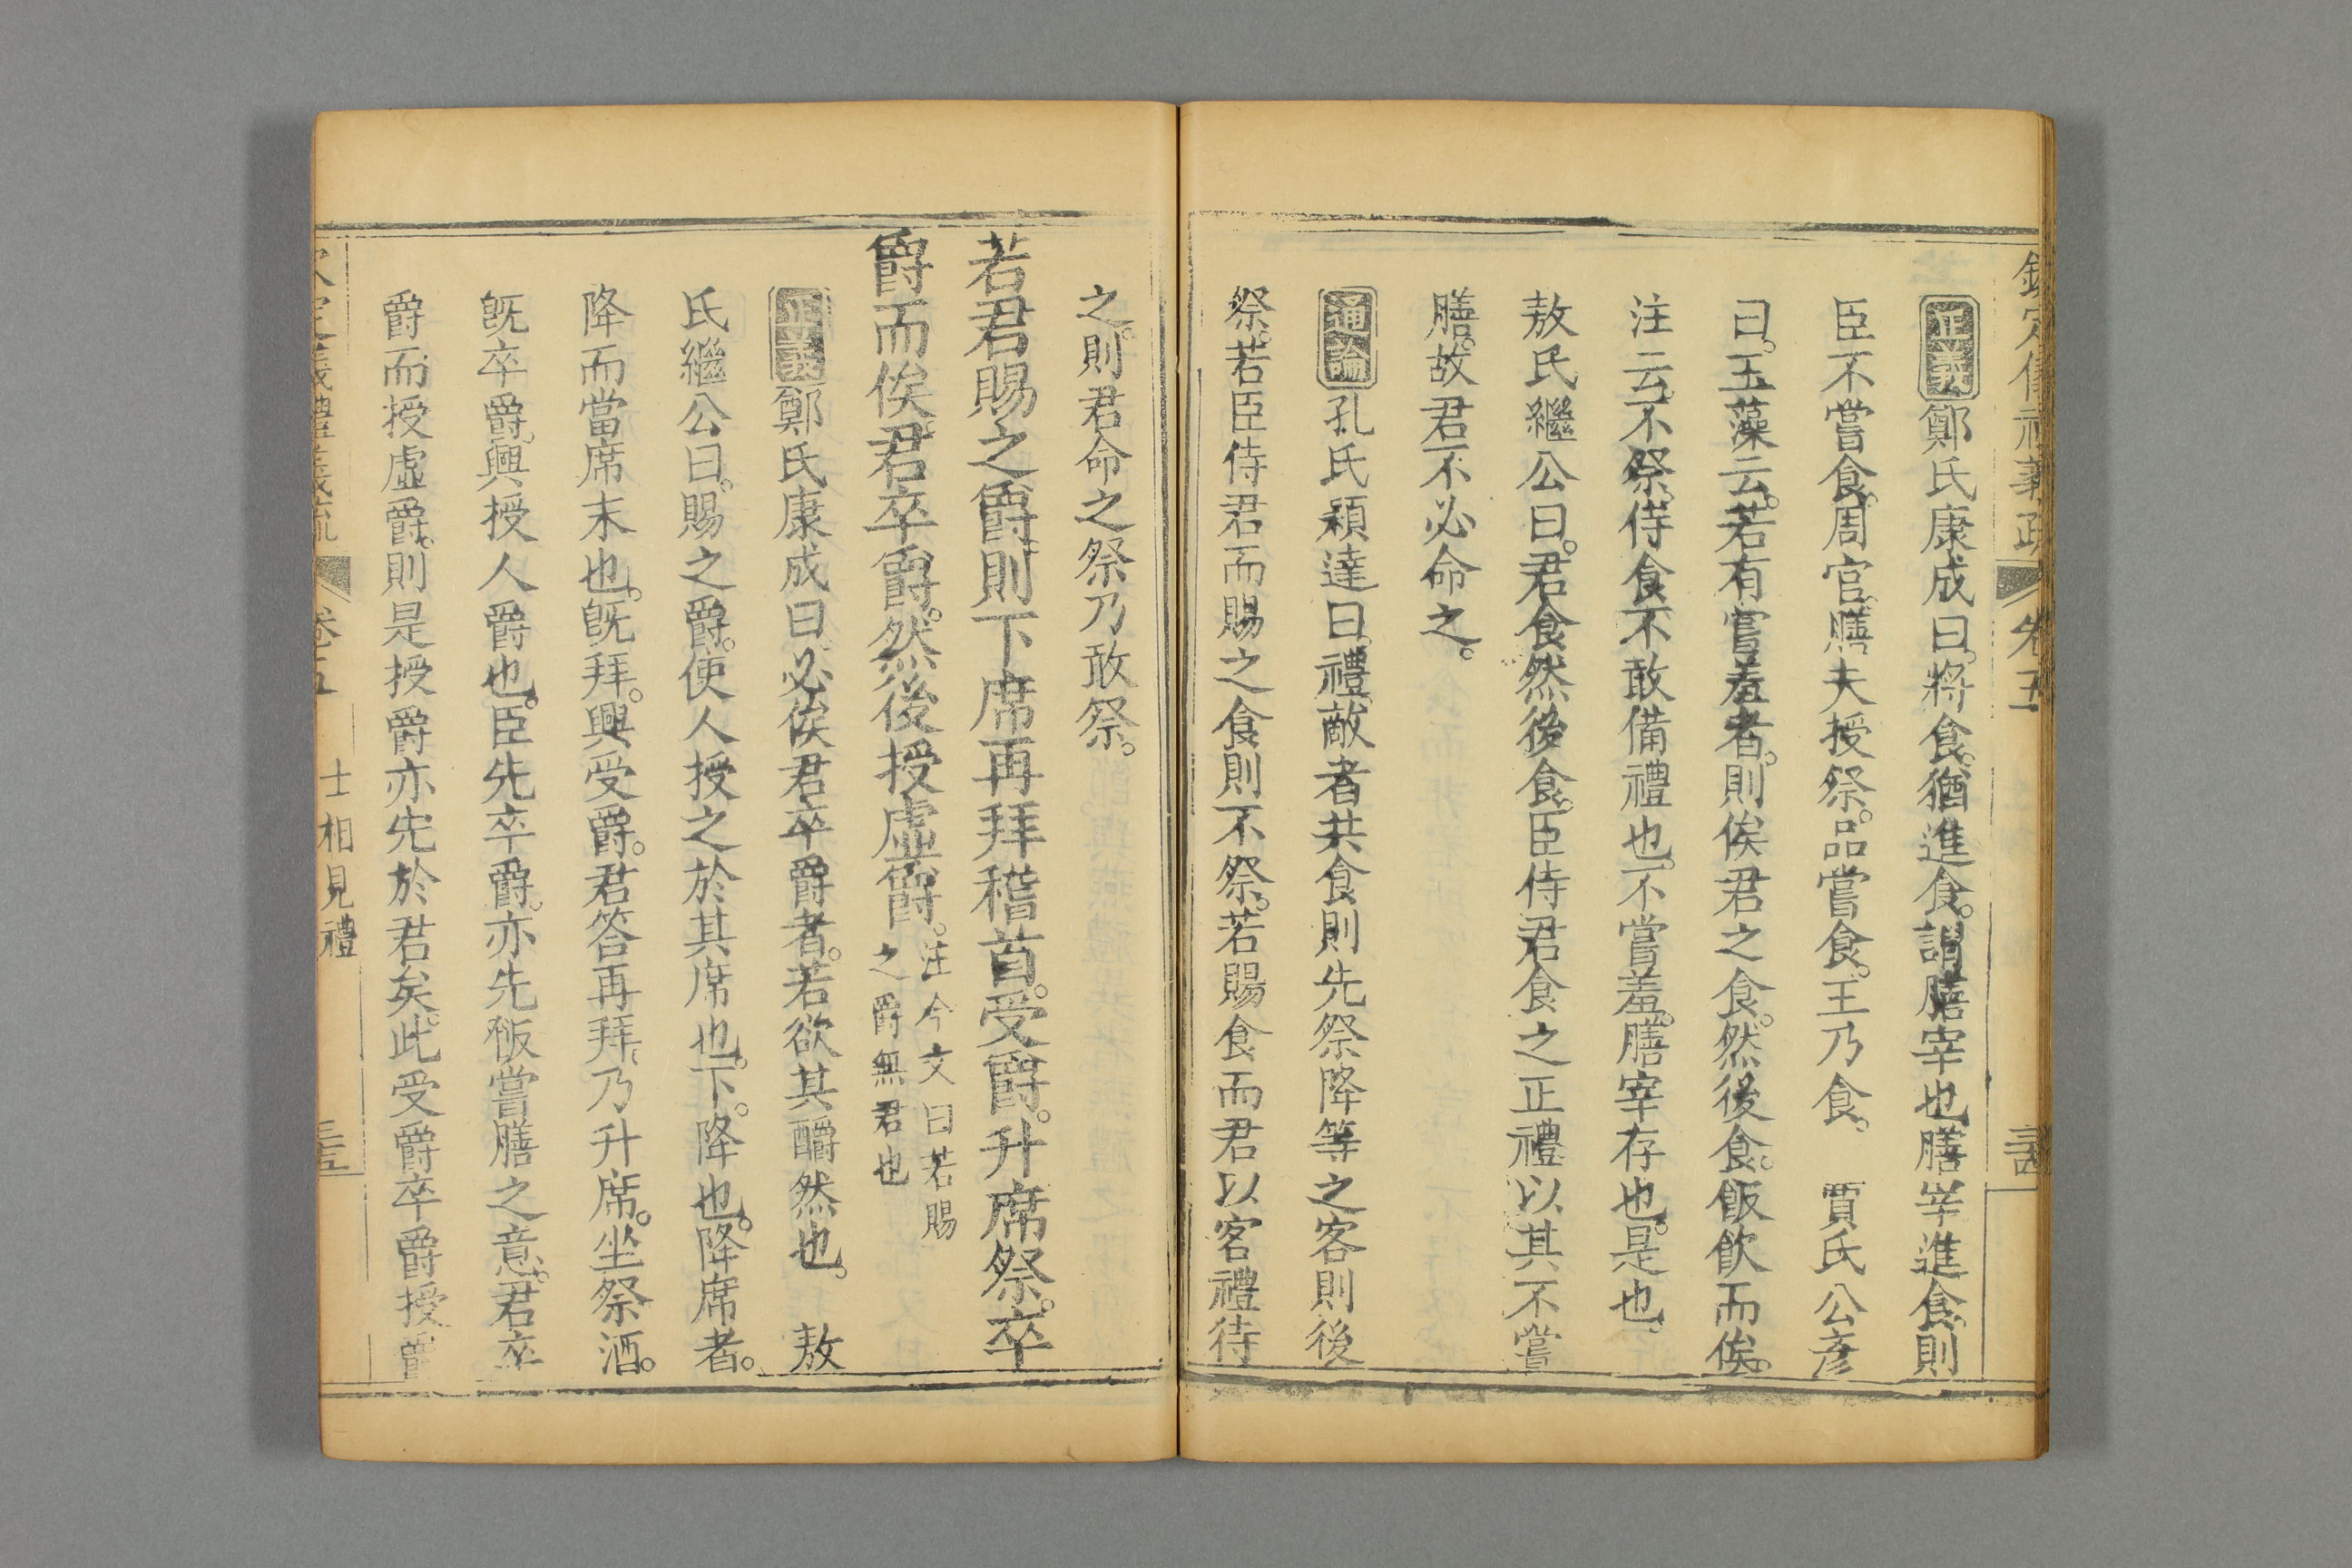 欽定儀禮義疏 卷五
正義鄭氏康成曰。將食。猶進食。謂膳宰也。膳宰進食。則
臣不嘗食。周官。膳夫授祭。品嘗食。王乃食。 賈氏公彥
曰。玉藻云。若有嘗羞者。則俟君之食。然後食。飯飲而俟。
注云。不祭。侍食不敢備禮也。不嘗羞。膳宰存也。是也。
敖氏繼公曰。君食然後食。臣侍君食之正禮以其不嘗
膳。故君不必命之。
通論孔氏穎達曰。禮。敵者共食則先祭。降等之客則後
祭。若臣侍君而賜之食則不祭。若賜食而君以客禮待
之。則君命之祭乃敢祭。
若君賜之爵。則下席再拜稽首。受爵。升席祭。卒
爵而俟。君卒爵。然後授虛爵。注今文曰若賜
之爵無君也
正義鄭氏康成曰。必俟君卒爵者。若欲其釂然也。 敖
氏繼公曰。賜之爵。使人授之於其席也。下。降也。降席者。
降而當席末也。旣拜。興受爵。君答再拜。乃升席。坐祭酒。
旣卒爵。興授人爵也。臣先卒爵。亦先飯嘗膳之意。君卒
爵而授虛爵。則是授爵亦先於君矣。此受爵卒爵授爵
欽定儀禮義疏 卷五 士相見禮